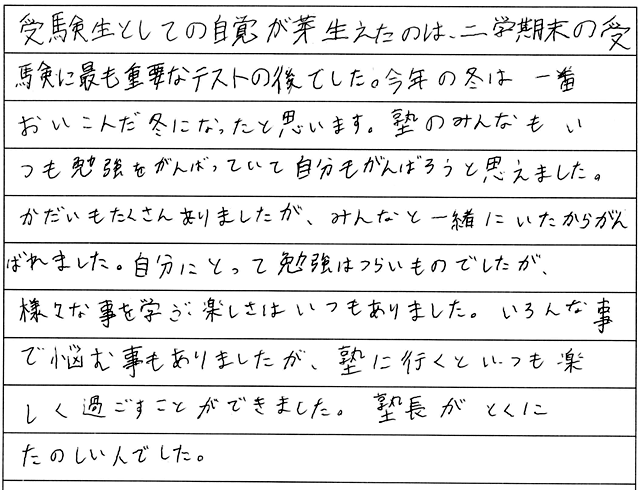 受験生としての自覚が芽生えたのは、二学期末の受
験に最も重要なテストの後でした。今年の冬は一番
おいこんだ冬になったと思います。塾のみんなもい
つも勉強をがんばっていて自分もがんばろうと思えました。
かだいもたくさんありましたが、みんなと一緒にいたからがん
ばれました。自分にとって勉強はつらいものでしたが、
様々な事を学ぶ楽しさはいつもありました。いろんな事
で悩む事もありましたが、塾に行くといつも楽
しく過ごすことができました。塾長がとくに
たのしい人でした。